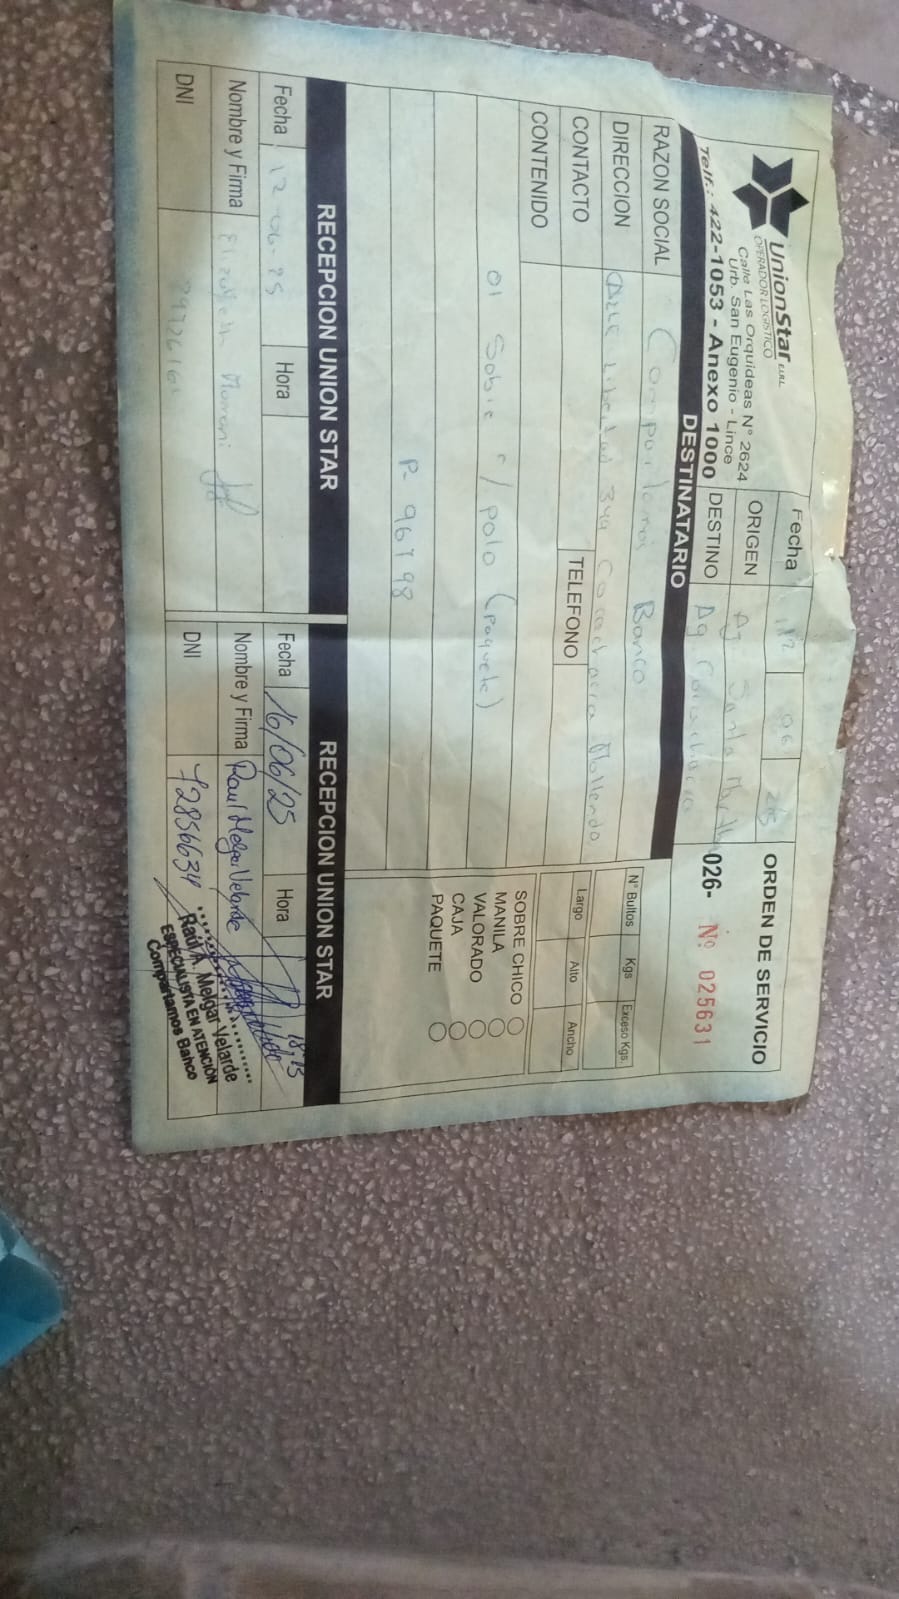 UnionStar E.I.R.L.
OPERADOR LOGISTICO
Calle Las Orquideas N° 2624
Urb. San Eugenio - Lince
Telf.: 422-1053 - Anexo 1000
Fecha 12 06 25
ORIGEN Ag. Santa Martha
DESTINO Ag. Cocachacra
ORDEN DE SERVICIO
026- N° 025631
DESTINATARIO
RAZON SOCIAL Compartamos Banco
DIRECCION Calle Libertad 344 Cocachacra Mollendo
CONTACTO
TELEFONO
CONTENIDO
01 Sobre c/polo (paquete)
P-96798
N° Bultos Kgs Exceso Kgs.
Largo Alto Ancho
SOBRE CHICO
MANILA
VALORADO
CAJA
PAQUETE
RECEPCION UNION STAR
Fecha 12-06-25 Hora
Nombre y Firma Elizabeth Mamani
DNI
RECEPCION UNION STAR
Fecha 16/06/25 Hora 18:13
Nombre y Firma Raul Melgar Velarde
DNI 42856634
Raúl A. Melgar Velarde
ESPECIALISTA EN ATENCIÓN
Compartamos Banco